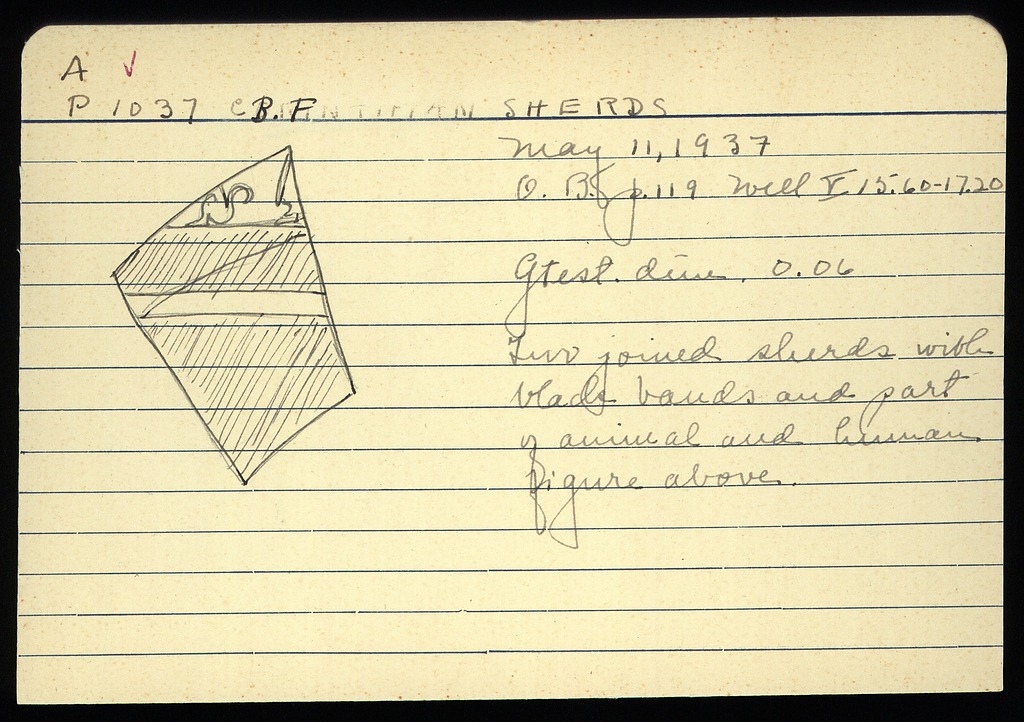 A ✓
P 1037 B.F. SHERDS
May 11, 1937
O. B. p. 119 Well V 15.60-17.20
Gtest. dim. 0.06
Two joined sherds with
black bands and part
of animal and human
figure above.